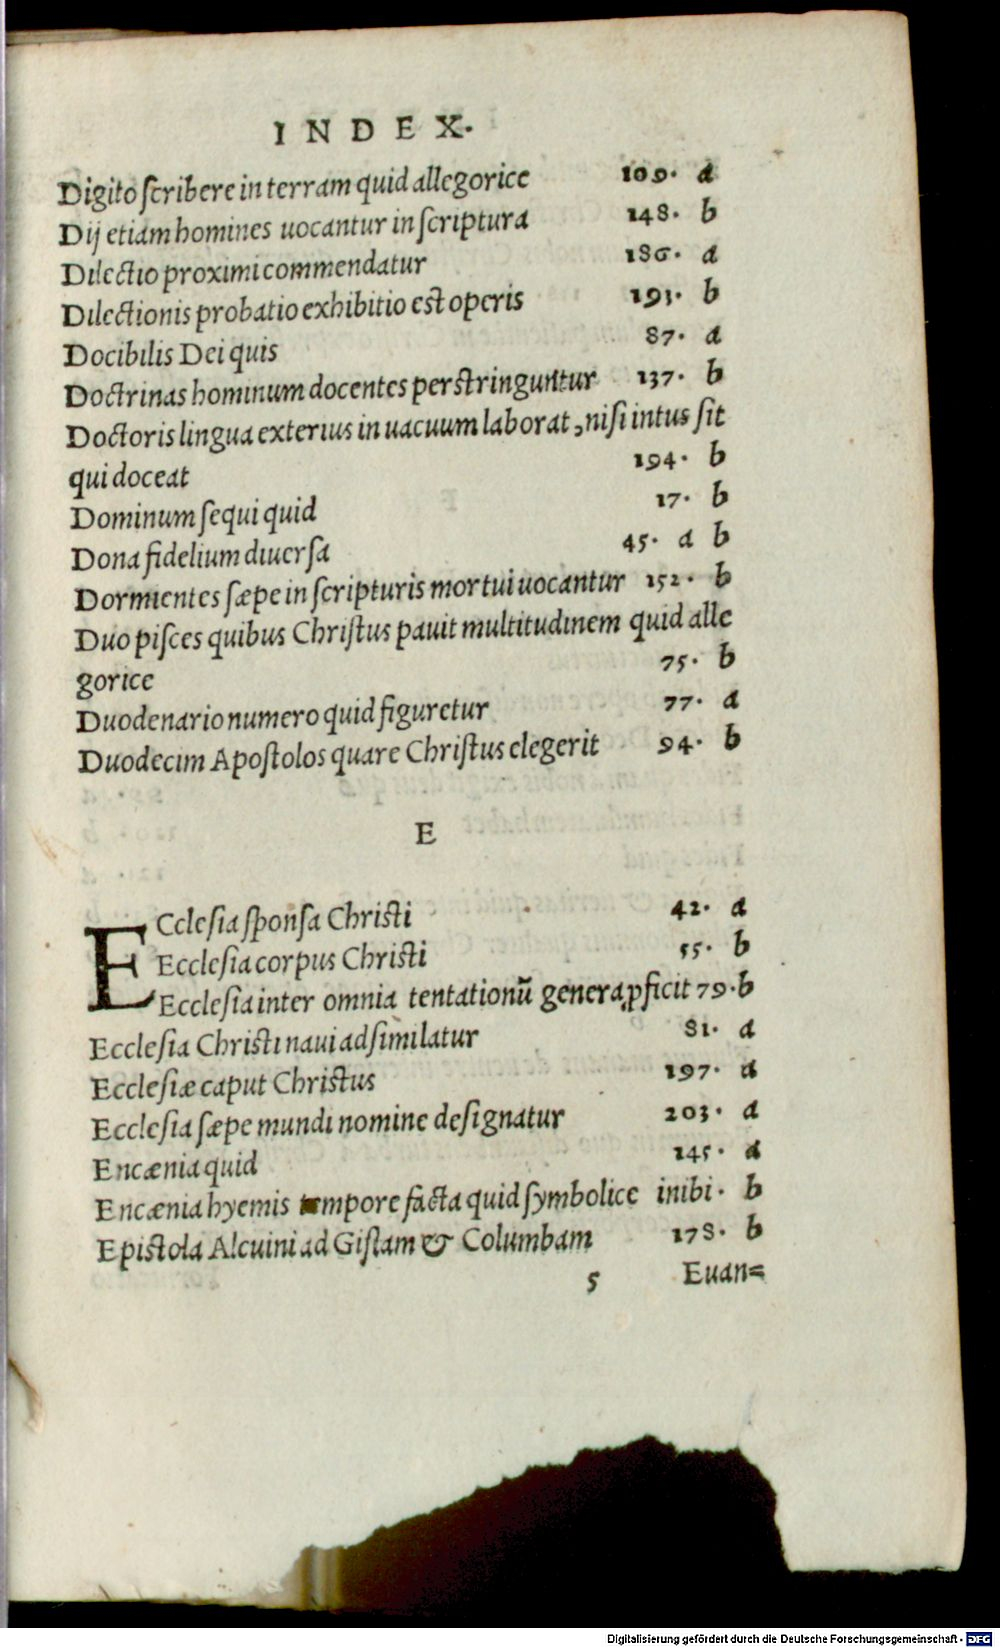 INDEX.
Digito ſcribere in terram quid allegorice 109. a
Dij etiam homines uocantur in ſcriptura 148. b
Dilectio proximi commendatur 186. a
Dilectionis probatio exhibitio est operis 193. b
Docibilis Dei quis 87. a
Doctrinas hominum docentes perstringuntur 137. b
Doctoris lingua exterius in uacuum laborat, niſi intus ſit
qui doceat 194. b
Dominum ſequi quid 17. b
Dona fidelium diuerſa 45. a b
Dormientes ſæpe in ſcripturis mortui uocantur 152. b
Duo piſces quibus Chriſtus pauit multitudinem quid alle
gorice 75. b
Duodenario numero quid figuretur 77. a
Duodecim Apoſtolos quare Chriſtus elegerit 94. b
E
ECcleſia ſponſa Chriſti 42. a
Eccleſia corpus Chriſti 55. b
Eccleſia inter omnia tentationū genera ꝓficit 79. b
Eccleſia Chriſti naui adſimilatur 81. a
Eccleſiæ caput Chriſtus 197. a
Eccleſia ſæpe mundi nomine deſignatur 203. a
Encænia quid 145. a
Encænia hyemis tempore facta quid ſymbolice inibi. b
Epistola Alcuini ad Giſlam & Columbam 178. b
5 Euan=
Digitalisierung gefördert durch die Deutsche Forschungsgemeinschaft - DFG